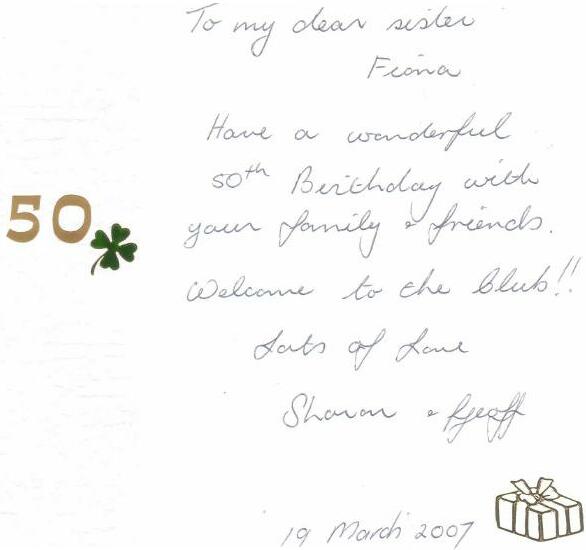 To my dear sister
Fiona
Have a wonderful
50th Birthday with
50
your family & friends.
Welcome to the Club!!
Lots of Love
Sharon & Geoff
19 March 2007